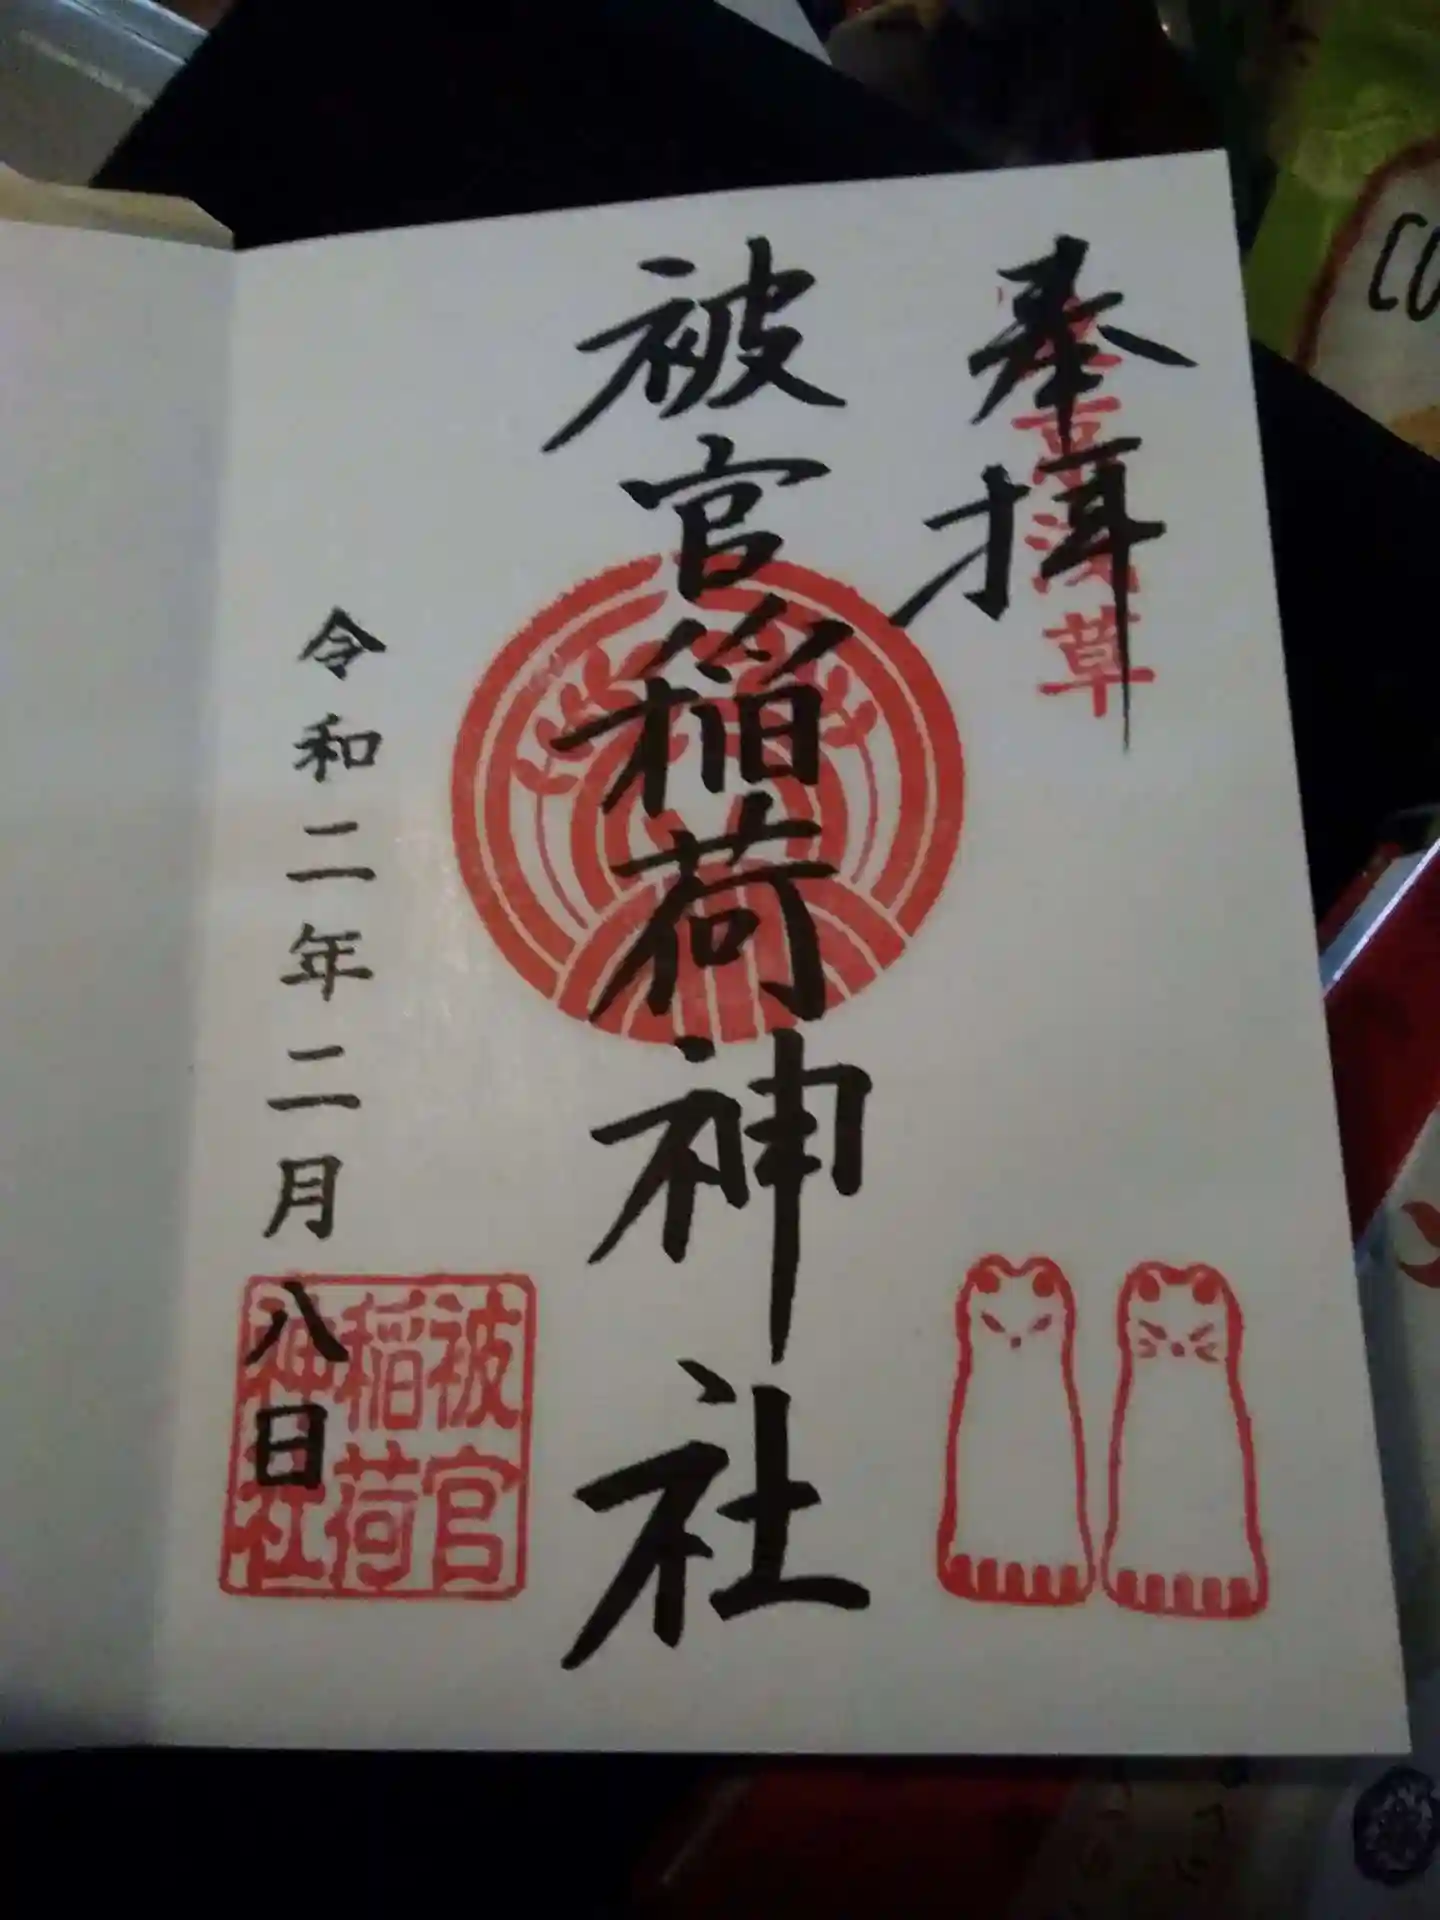 奉拝
東京浅草
被官稲荷神社
令和二年二月八日
被官
稲荷
神社